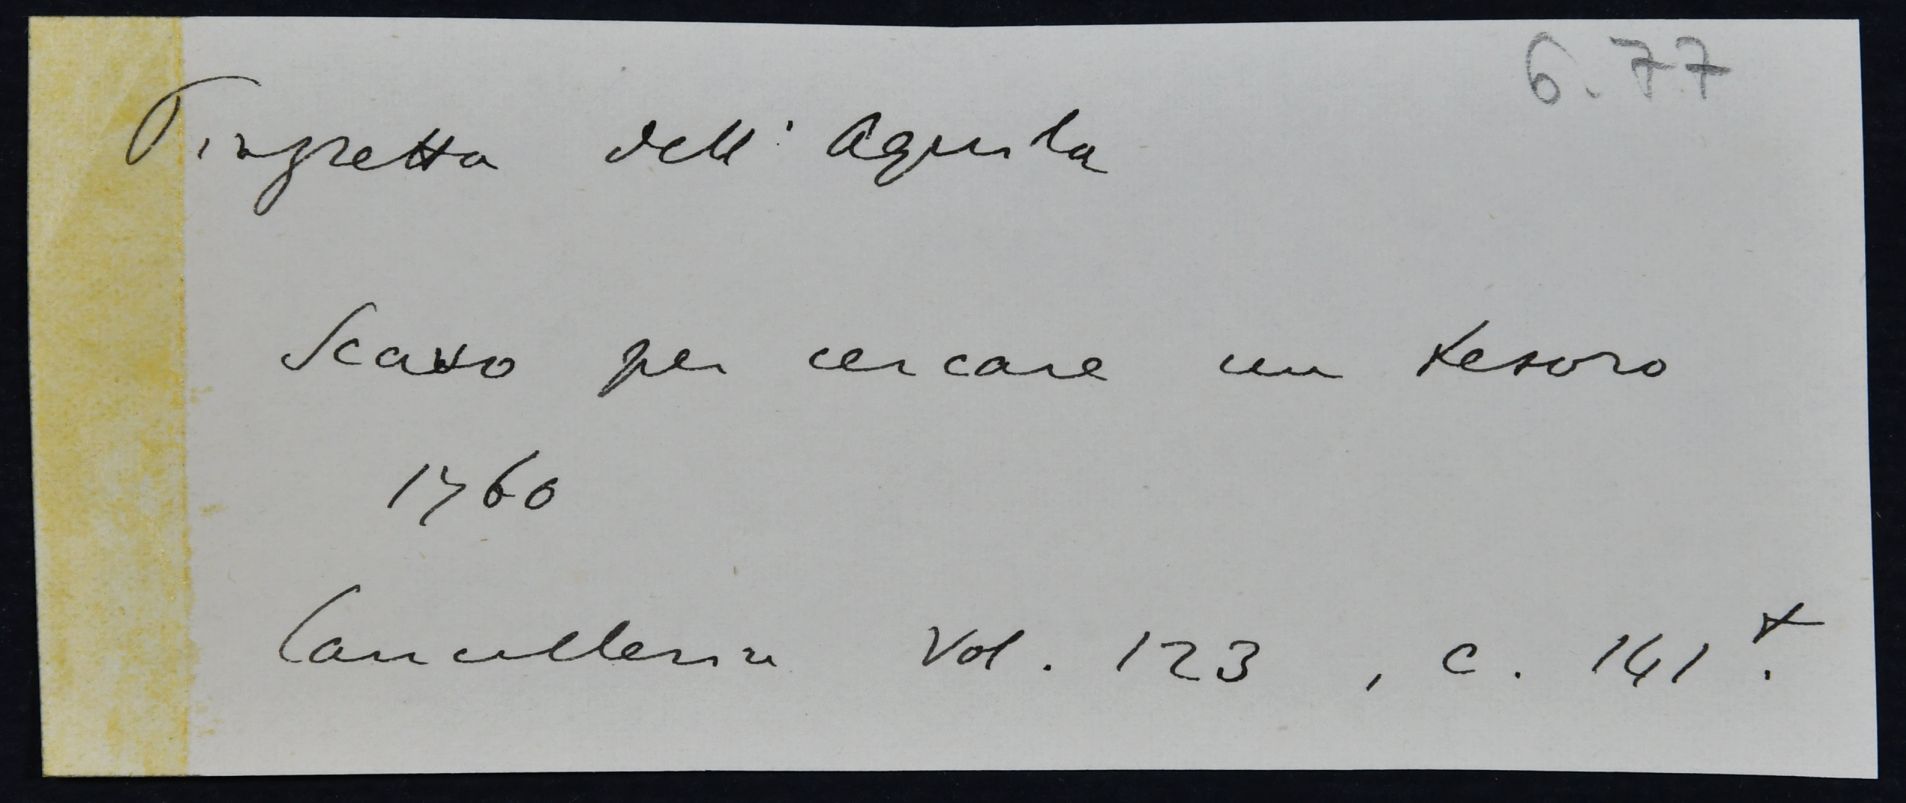 6.77
Piazzetta dell'Aquila
Scavo per cercare un tesoro
1760
Cancelleria Vol. 123, c. 141 t.